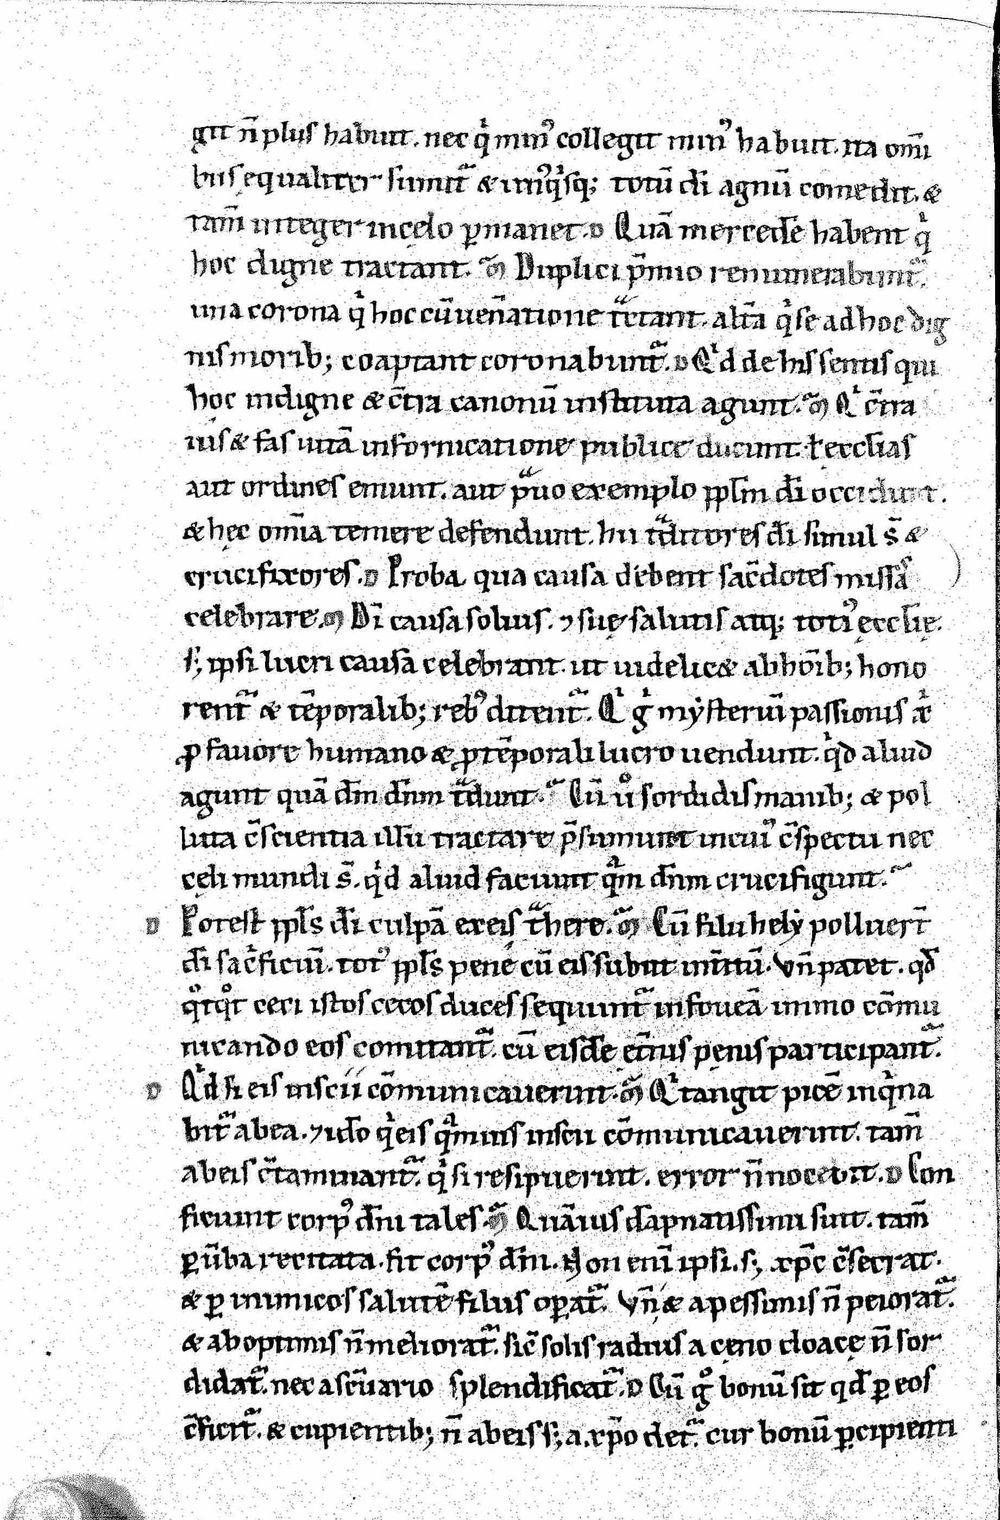 git n̄ plus habuit. nec q̇ min᾽ collegit min᾽ habuit. ita om̄i
bus equaliter sumit᷑ & un᾽q̇sq; totū dī agnū comedit. &
tam̄ integer in cęlo ꝑmanet. D Quā mercedē habent q̇
hoc digne tractant. M Duplici p̄mio remunerabunt᷑.
una corona q̇ hoc cū uen̄atione t̄ctant. alt̄a q̇ se ad hoc dig
nis morib; coaptant coronabunt᷑. D Qͥd de his sentis qui
hoc indigne & c̄tra canonū instituta agunt. M Qͥ c̄tra
ius & fas uitā in fornicatione publice ducunt. ł eccłias
aut ordines emunt. aut p͛uo exemplo ppłm dī occidunt.
& hęc om̄ia temere defendunt. hii t͛ditores dī simul s̄ &
crucifixores. D Proba qua causa debent sac̄dotes missā
celebrare. M Dī causa solius. ⁊ suę salutis atq; toti᾽ ęccłię.
s; ipsi lucri causā celebrant. ut uidelic& ab hōib; hono
rent᷑ & tēporalib; reb᾽ ditent᷑. Qͥ gͦ mẏsteriū passionis xͥ
ꝓ fauore humano & ꝓ tēporali lucro uendunt. qͥd aliud
agunt quā dm̄ dn̄m t͛dunt. Cū ū sordidis manib; & pol
luta c̄scientia illū tractare p̄sumunt in cui᾽ c̄spectu nec
cęli mundi s̄. qͥd aliud faciunt qͣm dn̄m crucifigunt.
D Potest ppłs dī culpā ex eis t͛here. M Cū filii helẏ polluer̄t
dī sac̄ficiū. tot᾽ ppłs pene cū eis subiit int̄itū. Vn̄ patet. qd̄
qͦtqͦt ceci istos cecos duces sequunt᷑ in foueā immo cōmu
nicando eos comitant᷑. cū eisdē et̄nis pęnis participant᷑.
D Qͥd si eis inscii cōmunicauerunt. M Qͥ tangit picē inqͥna
bit᷑ ab ea. ⁊ idō qͥ eis qͣmuis inscii cōmunicauerint. tam̄
ab eis c̄taminant᷑. qͥ si resipuerint. error n̄ nocebit. D Con
ficiunt corp᾽ dn̄i tales. M Quāuis dāpnatissimi sint. tam̄
ꝑ ūba recitata. fit corp᾽ dn̄i. Non enī ipsi. s; xp̄c c̄secrat.
& ꝑ inimicos salutē filiis oꝑat᷑. Vn̄ & a pessimis n̄ peiorat᷑.
& ab optimis n̄ meliorat᷑. sic̄ solis radius a cęno cloacę n̄ sor
didat᷑. nec a sc̄uario splendificat᷑. D Cū gͦ bonū sit qd̄ ꝑ eos
c̄ficit᷑. & cupientib; n̄ ab eis s; a xp̄o det᷑. cur bonū ꝑcipienti